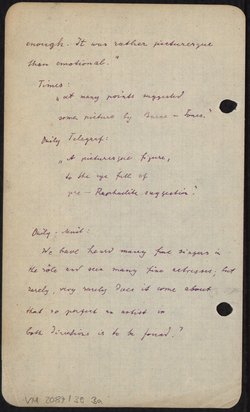 enough. It was rather picturesque
than emotional."
Times:
"At many points suggested
some picture by Burne-Jones."
Daily Telegraf:
"A picturesque figure,
to the eye full of
pre-Raphaelite suggestion."
Daily-Mail:
We have heard many fine singers in
the rôle and seen many fine actresses, but
rarely, very rarely does it come about
that so perfect an artist in
both directions is to be found."
VM 2089/30 3a